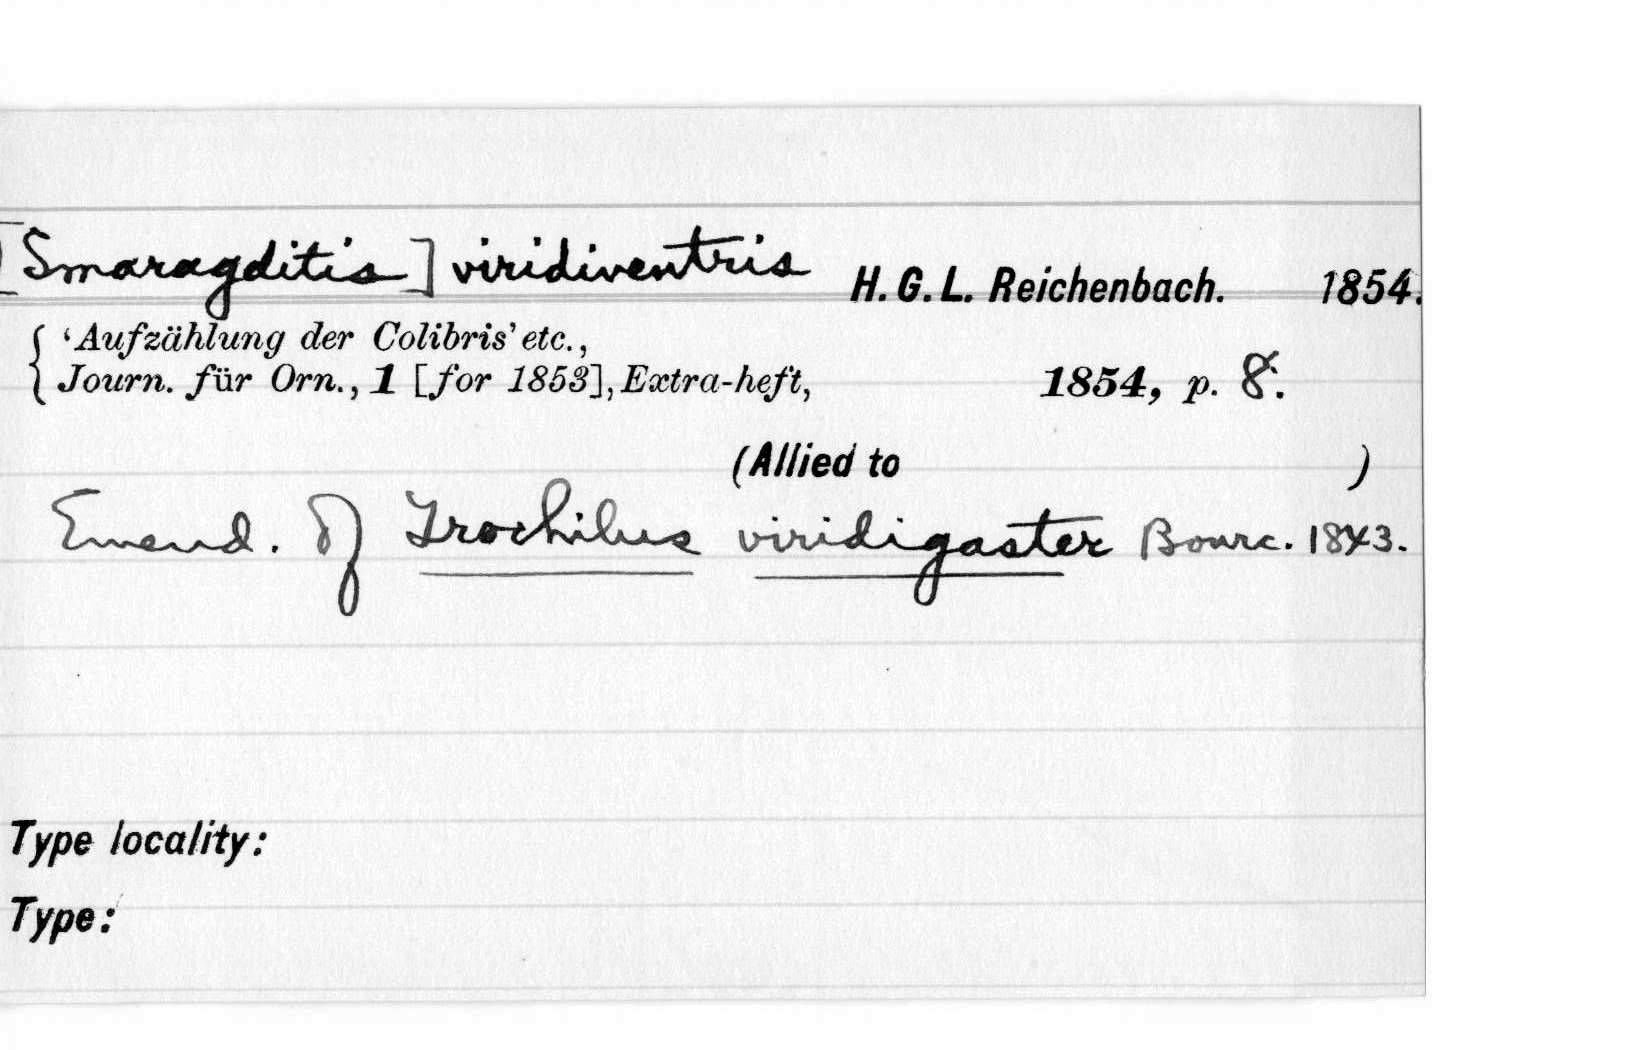 [Smaragditis] viridiventris H. G. L. Reichenbach. 1854.
{ 'Aufzählung der Colibris' etc.,
Journ. für Orn., 1 [for 1853], Extra-heft, 1854, p. 8.
(Allied to )
Emend. of Trochilus viridigaster Bourc. 1843.
Type locality:
Type: